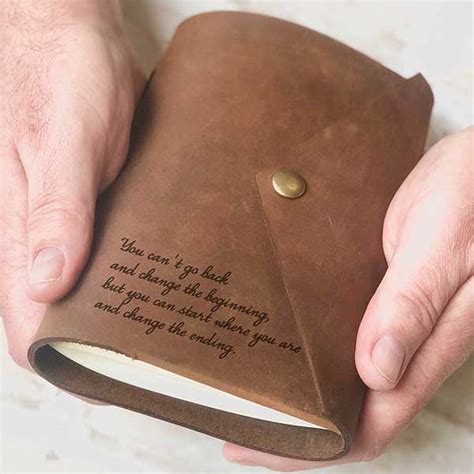 You can't go back
and change the beginning,
but you can start where you are
and change the ending.